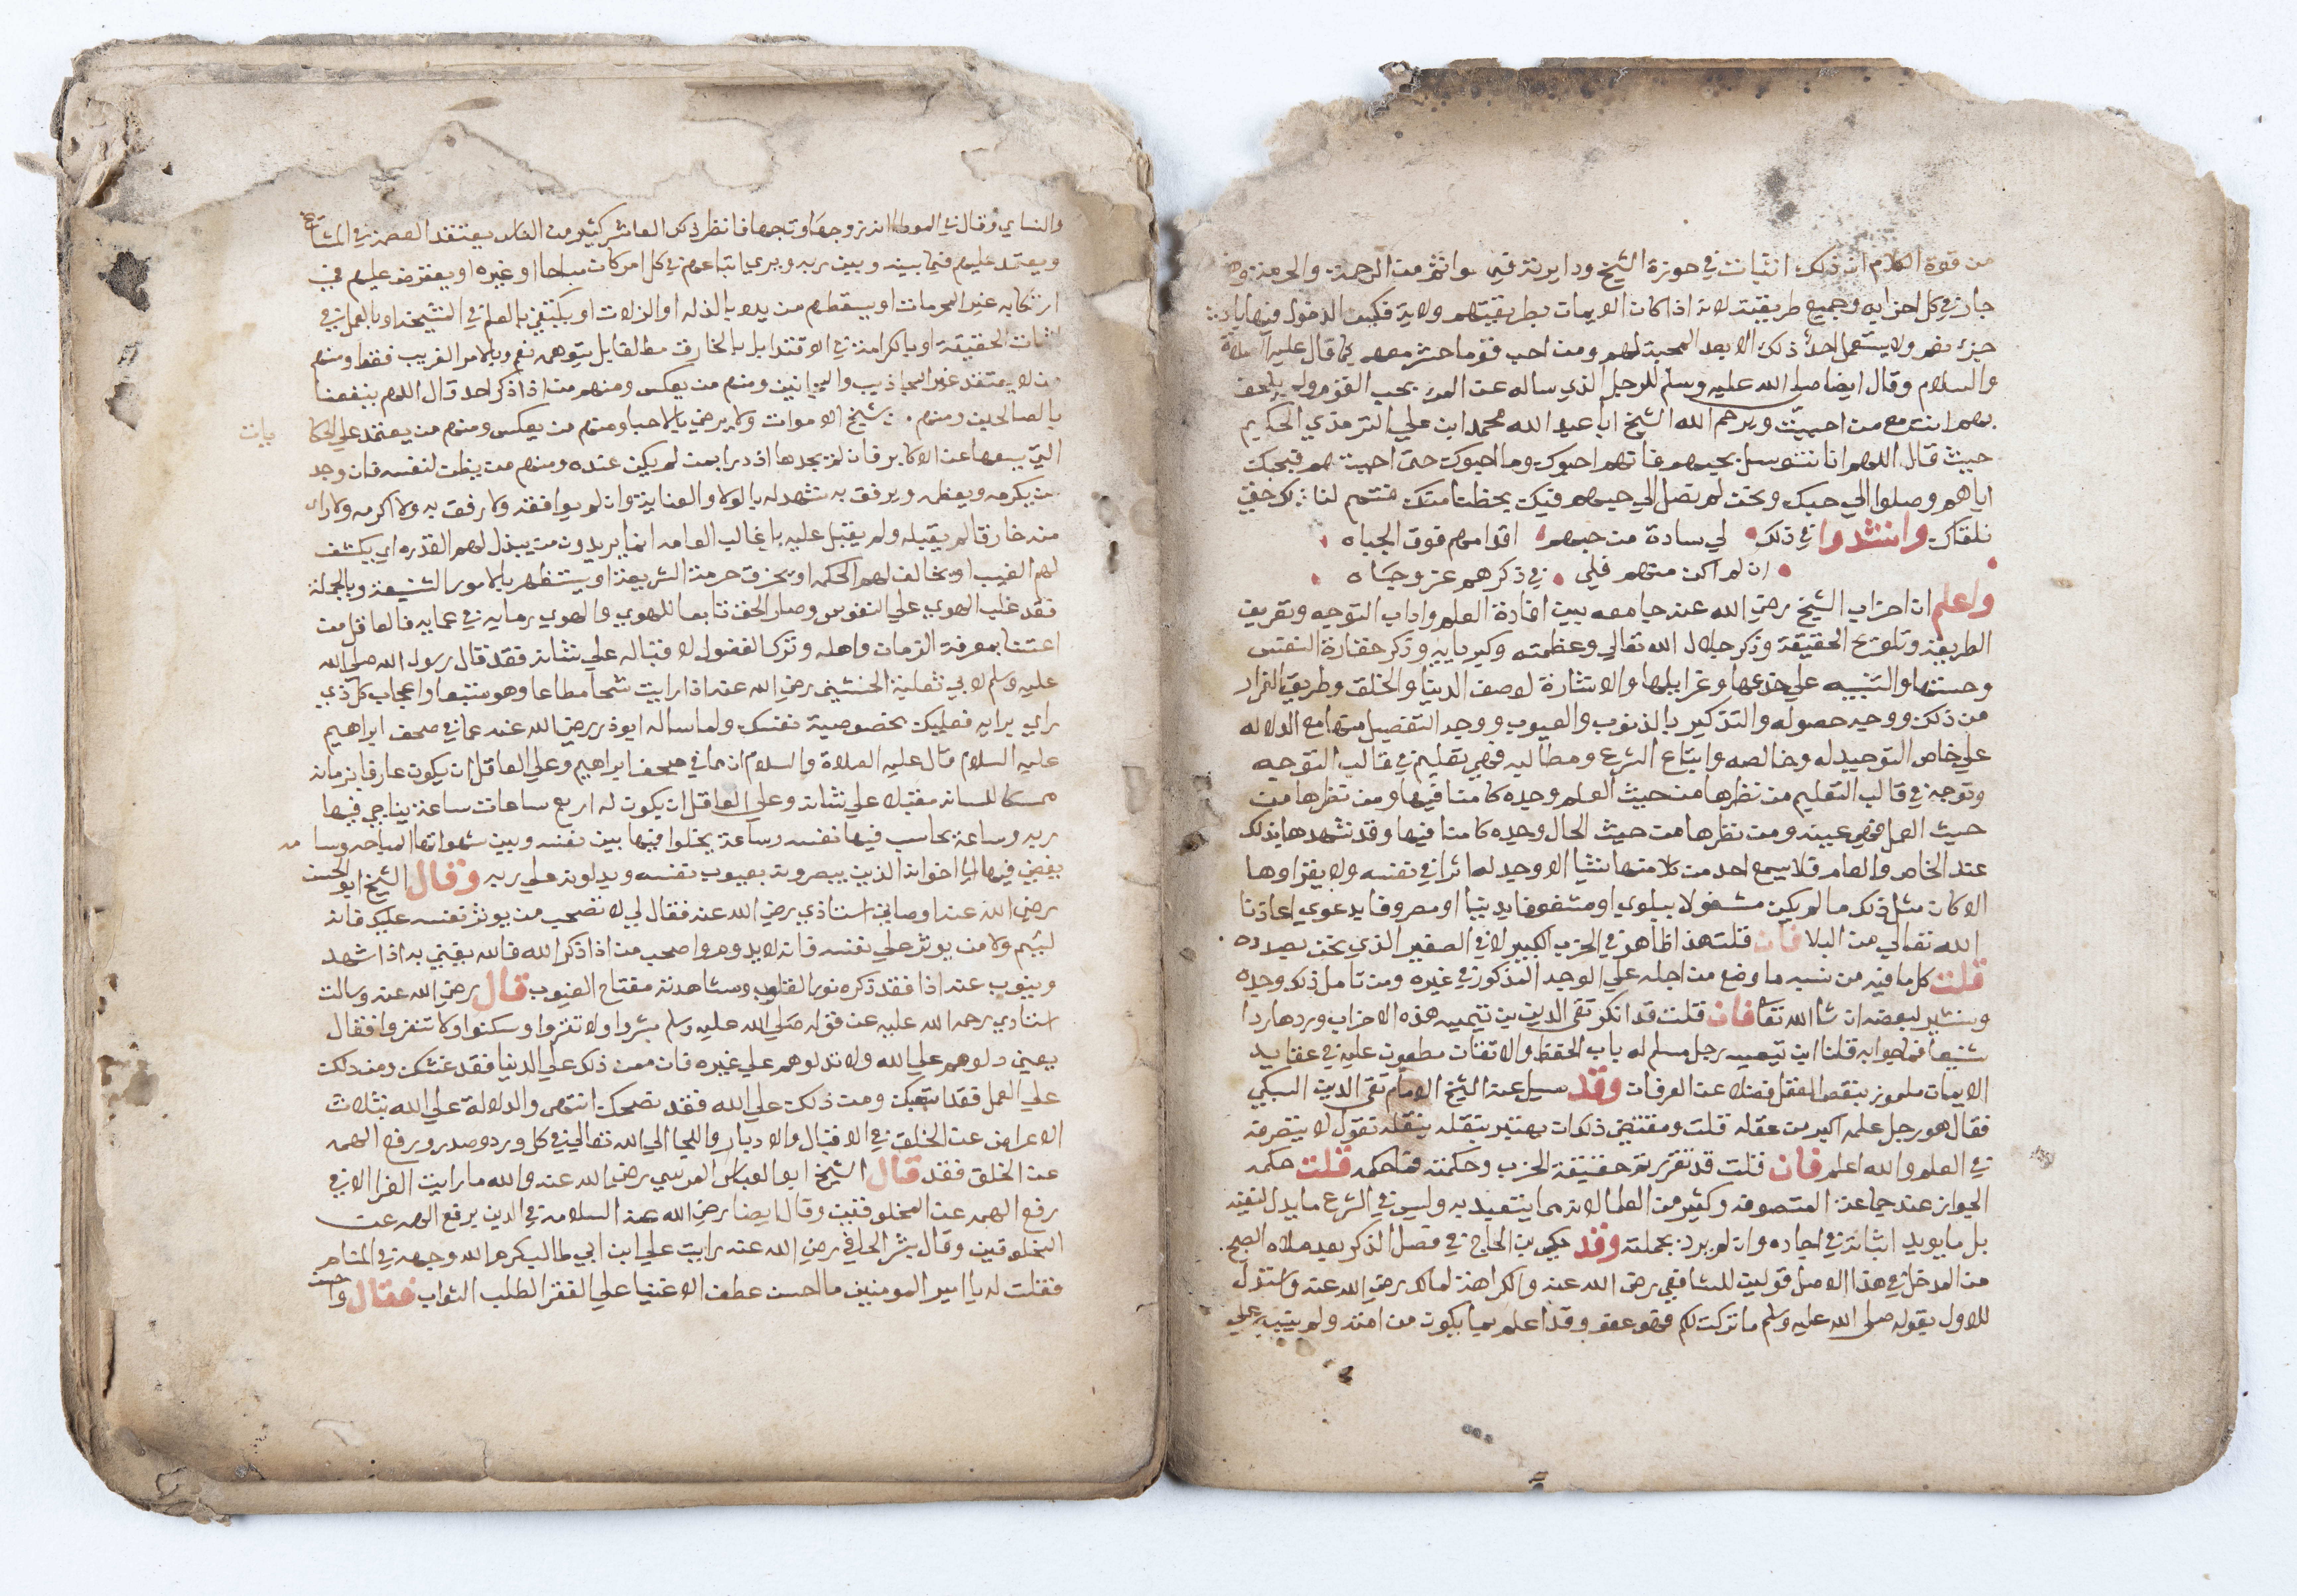 من قوة الكلام ان ذلك اثبات في حوزة الشيخ ودايرته فهي والحرمة
جار في كل احزابه وجميع طريقته لانه اذا كان الايمان بطريقتهم ولاية فكيف الدخول فيها باد
جزء نعم ولا يستعمل احد ذلك الا بعد المحبة لهم ومن احب قوما حشر معهم كما قال عليه الصلاة
والسلام وقال ايضا صلى الله عليه وسلم للرجل الذي ساله عن المرء يحب القوم ولم يلحق
بهم انت مع من احببت ويرحم الله الشيخ ابا عبد الله محمد ابن علي الترمذي الحكيم
حيث قال اللهم انا نتوسل بحبهم فانهم احبوك وما احبوك حتى احببتهم فبحبك
اياهم وصلوا الي حبك ونحن لم نصل الي حبهم فيك بحظنا منك فتمم لنا ذلك حتى
نلقاك وانشدوا في ذلك لي سادة من حبهم اقدامهم فوق الجباه
ان لم اكن منهم فلي في ذكرهم عز وجاه
واعلم ان احزاب الشيخ رضي الله عنه جامعه بين افادة العلم واداب التوجه وتعريف
الطريقة وتلويح الحقيقة وذكر جلال الله تعالي وعظمته وكبريايه وذكر حقارة النفس
وخستها والتنبيه علي خدعها وغوايلها والاشارة لوصف الدنيا والخلق وطريق الفرار
من ذلك ووجه حصوله والتذكير بالذنوب والعيوب ووجه التفصيل منها مع الدلاله
علي خاص التوحيد له وخالصه واتباع الشرع ومطالبه فهي تعليم في قالب التوجه
وتوجه في قالب التعليم من نظرها من حيث العلم وجده كامنا فيها ومن نظرها من
حيث العمل فهي عينه ومن نظرها من حيث الحال وجده كامنا فيها وقد شهد هايذلك
عند الخاص والعام فلا يسمع احد من كلامها شيا الا وجد له اثرا في نفسه ولا يقراوها
الا كان مثل ذلك ما لم يكن مشغولا ببلوي او مشغوفا بدنيا او مصروفا بدعوي اعاذنا
الله تعالي من البلا فان قلت هذا ظاهر في الحزب الكبير لا في الصغير الذي نحن بصدده
قلت كل ما فيه من نسبه ما وضع من اجله علي الوجه المذكور في غيره ومن تامل ذلك وجده
وسنشير لبعضه ان شا الله تعا فان قلت قد انكر تقي الدين بن تيميه هذه الاحزاب وردها ردا
شنيعا فما جوابه قلنا ابن تيميه رجل مسلم له باب الحفظ والاتقان مطعون عليه في عقايد
الايمان ملموز بنقص العقل فضلا عن العرفان وقد سيل عنه الشيخ الامام تقي الدين السبكي
فقال هو رجل علمه اكبر من عقله قلت ومقتضي ذلك ان يعتبر بنقله لا بتصرفه
في العلم والله اعلم فان قلت قد تقرر بقر حقيقة الحزب وحكمته فما حكمه قلت حكمه
الجواز عند جماعة المتصوفه وكثير من العلما لانه مما يتعبد به وليس في الشرع ما يدل لنفيه
بل ما يويد اثباته في احاده وان لم يرد بجملته وقد حكي بن الحاج في فصل الذكر بعد صلاة الصبح
من المدخل في هذا الاصل قولين للشافعي رضي الله عنه والكراهة لمالك رضي الله عنه واستدل
للاول بقوله صلى الله عليه وسلم ما تركت لكم فهو عفو وقد اعلم بما يكون من امته ولم ينبه علي
والنساي وقال في الموطا انه تزوجها فانظر ذلك العاشر كثير من الناس يعتقد العصمة في المشايخ
ويعتمد عليهم فيما بينه وبين ربه ويري اتباعهم في كل امر كان مباحا او غيره او يعترض عليهم في
ارتكابه غير المحرمات او يسقطهم من يده بالذله او الزلات او يكتفي بالعلم في المشيخه او بالعمل في
اثبات الحقيقة او بالكرامة في الاقتدا بل بالخارق مطلقا بل بتوهمه نعم وبالامر الغريب فقط ومنهم
من لا يعتقد غير المجاذيب والمجانين ومنهم من يعكس ومنهم من اذا ذكر احد قال اللهم ينفعنا
بالصالحين ومنهم شيخ الاموات ولا يرضي بالاحيا ومنهم من يعكس ومنهم من يعتمد علي الحكا
يات
التي يسمعها عن الاكابر فان لم يجدها اذ درا بمن لم يكن عنده ومنهم من يظن لنفسه فان وجد
من يكرمه ويعظمه ويرفق به شهد له بالولا والعناية وان لم يوافقه ولا رفق به ولا اكرمه ولا راى
منه خارقا لم يقبله ولم يقبل عليه با غالب العامه انما يريدون من يبذل لهم القدره اي يكشف
لهم الغيب او يخالف لهم الحكمه او يخرق حرمة الشريعة او يستظهر بالامور الشنيعة وبالجملة
فقد غلب الهوي علي النفوس وصار الحق تابعا للهوي والهوي رمايه في عمايه فالعاقل من
اعتنا بمعرفة الزمان واهله وترك الفضول لاقباله علي شانه فقد قال رسول الله صلى الله
عليه وسلم لابي ثعلبة الخشني رضي الله عنه اذا رايت شحا مطاعا وهو متبعا واعجاب كل ذي
راي برايه فعليك بخصوصية نفسك ولما ساله ابو ذر رضي الله عنه عما في صحف ابراهيم
عليه السلام قال عليه الصلاة والسلام ان مما في صحف ابراهيم وعلي العاقل ان يكون عارفا بزمانه
ممسكا للسانه مقبلا علي شانه وعلي العاقل ان يكون له اربع ساعات ساعة يناجي فيها
ربه وساعة يحاسب فيها نفسه وساعة يخلوا فيها بين نفسه وبين شهواتها المباحه وسا عه
يفضي فيها الي اخوانه الذين يبصرونه بعيوب نفسه ويدلونه علي ربه وقال الشيخ ابو الحسن
رضي الله عنه اوصاني استاذي رضي الله عنه فقال لي لا تصحب من يوثر نفسه عليك فانه
لييم ولا من يوثر علي نفسه فانه لا يدوم واصحب من اذا ذكر الله فالله يغني به اذا شهد
وينوب عنه اذا فقد ذكره نور القلوب ومشاهدته مفتاح الغيوب قال رضي الله عنه وسالت
استاذي رحمه الله عليه عن قوله صلى الله عليه وسلم يسروا ولا تعسروا وسكنوا ولا تنفروا فقال
يعني دلوهم علي الله ولا تدلوهم علي غيره فان من ذلك علي الدنيا فقد غشك ومن دلك
علي العمل فقد اتعبك ومن ذلك علي الله فقد نصحك انتهي والدلالة علي الله بثلاث
الاعراض عن الخلق في الاقبال والادبار واللجا الي الله تعالي في كل ورد وصدر ورفع الهمه
عن الخلق فقد قال الشيخ ابو العباس المرسي رضي الله عنه والله ما رايت العز الا في
رفع الهمه عن المخلوقين وقال ايضا رضي الله عنه السلامه في الدين برفع الهمه عن
المخلوقين وقال بشر الحافي رضي الله عنه رايت علي ابن ابي طالب كرم الله وجهه في المنام
فقلت له يا امير المومنين ما احسن عطف الاغنيا علي الفقرا لطلب الثواب فقال واحسن